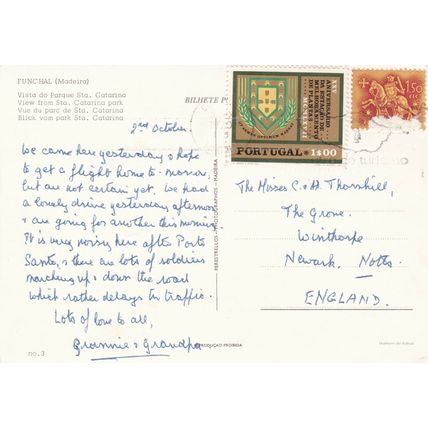 FUNCHAL (Madeira)
Vista do Parque Sta. Catarina
View from Sta. Catarina park
Vue du parc de Sta. Catarina
Blick vom park Sta. Catarina
BILHETE
XXV
ANIVERSÁRIO
DA ESTAÇÃO DE
MELHORAMENTO
DE PLANTAS
PORTUGAL 1$00
1$50
2nd October.
We came here yesterday & hope
to get a flight home to-morrow,
but are not certain yet. We had
a lovely drive yesterday afternoon
& are going for another this morning.
It is very noisy here after Porto
Santo, & there are lots of soldiers
marching up & down the road
which rather delays the traffic.
Lots of love to all,
Grannie & Grandpa
The Misses C & A Thornhill,
The Grove.
Winthorpe
Newark, Notts.
ENGLAND.
PERESTRELLOS PHOTOGRAPHOS - MADEIRA
no. 3
REPRODUÇÃO PROIBIDA